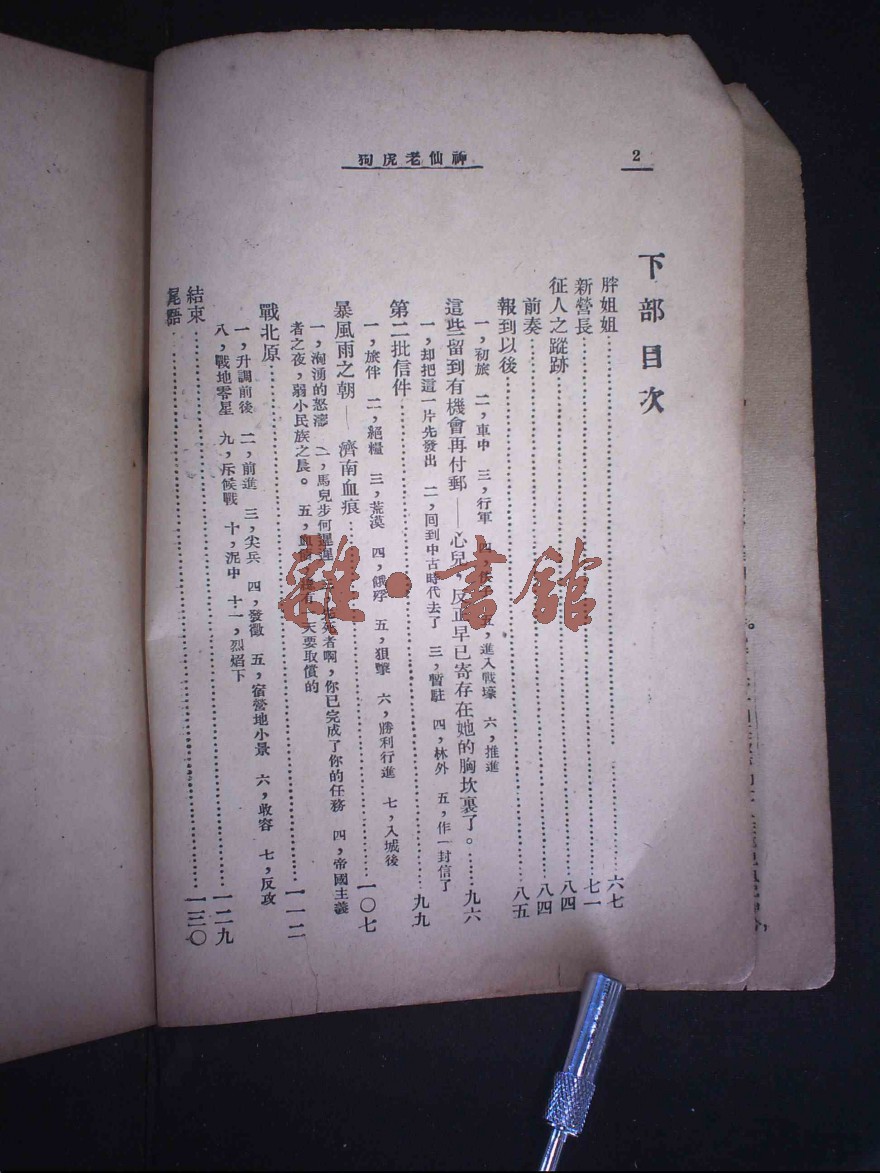 2
神仙老虎狗
下部目次
胖姐姐……六七
新營長……七一
征人之蹤跡……八四
前奏……八四
報到以後……八五
一,初旅 二,車中 三,行軍 四, 五,進入戰壕 六,推進
這些留到有機會再付郵——心兒,反正早已寄存在她的胸坎裏了。……九六
一,却把這一片先發出 二,回到中古時代去了 三,暫駐 四,林外 五,作一封信了
第二批信件……九九
一,旅伴 二,絕糧 三,荒漠 四,餓殍 五,狙擊 六,勝利行進 七,入城後
暴風雨之朝——濟南血痕……一〇七
一,洶湧的怒濤 二,馬兒步何遲遲 死者啊,你已完成了你的任務 四,帝國主義
者之夜,弱小民族之晨。 五,血 有一天要取償的
戰北原……一一二
一,升調前後 二,前進 三,尖兵 四,發徵 五,宿營地小景 六,收容 七,反攻
八,戰地零星 九,斥候戰 十,泥中 十一,烈焰下
結束……一二九
尾語……一三〇
雜·書館